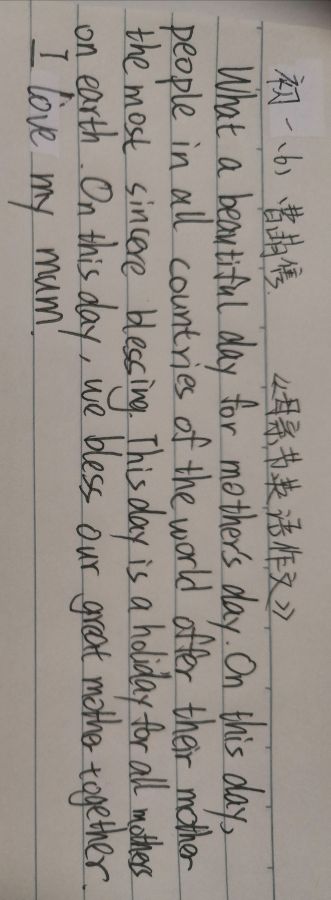 初一(6) 曹芮僖 《母亲节英语作文》
What a beautiful day for mother's day. On this day,
people in all countries of the world offer their mother
the most sincere blessing. This day is a holiday for all mothers
on earth. On this day, we bless our great mother together.
I love my mum.